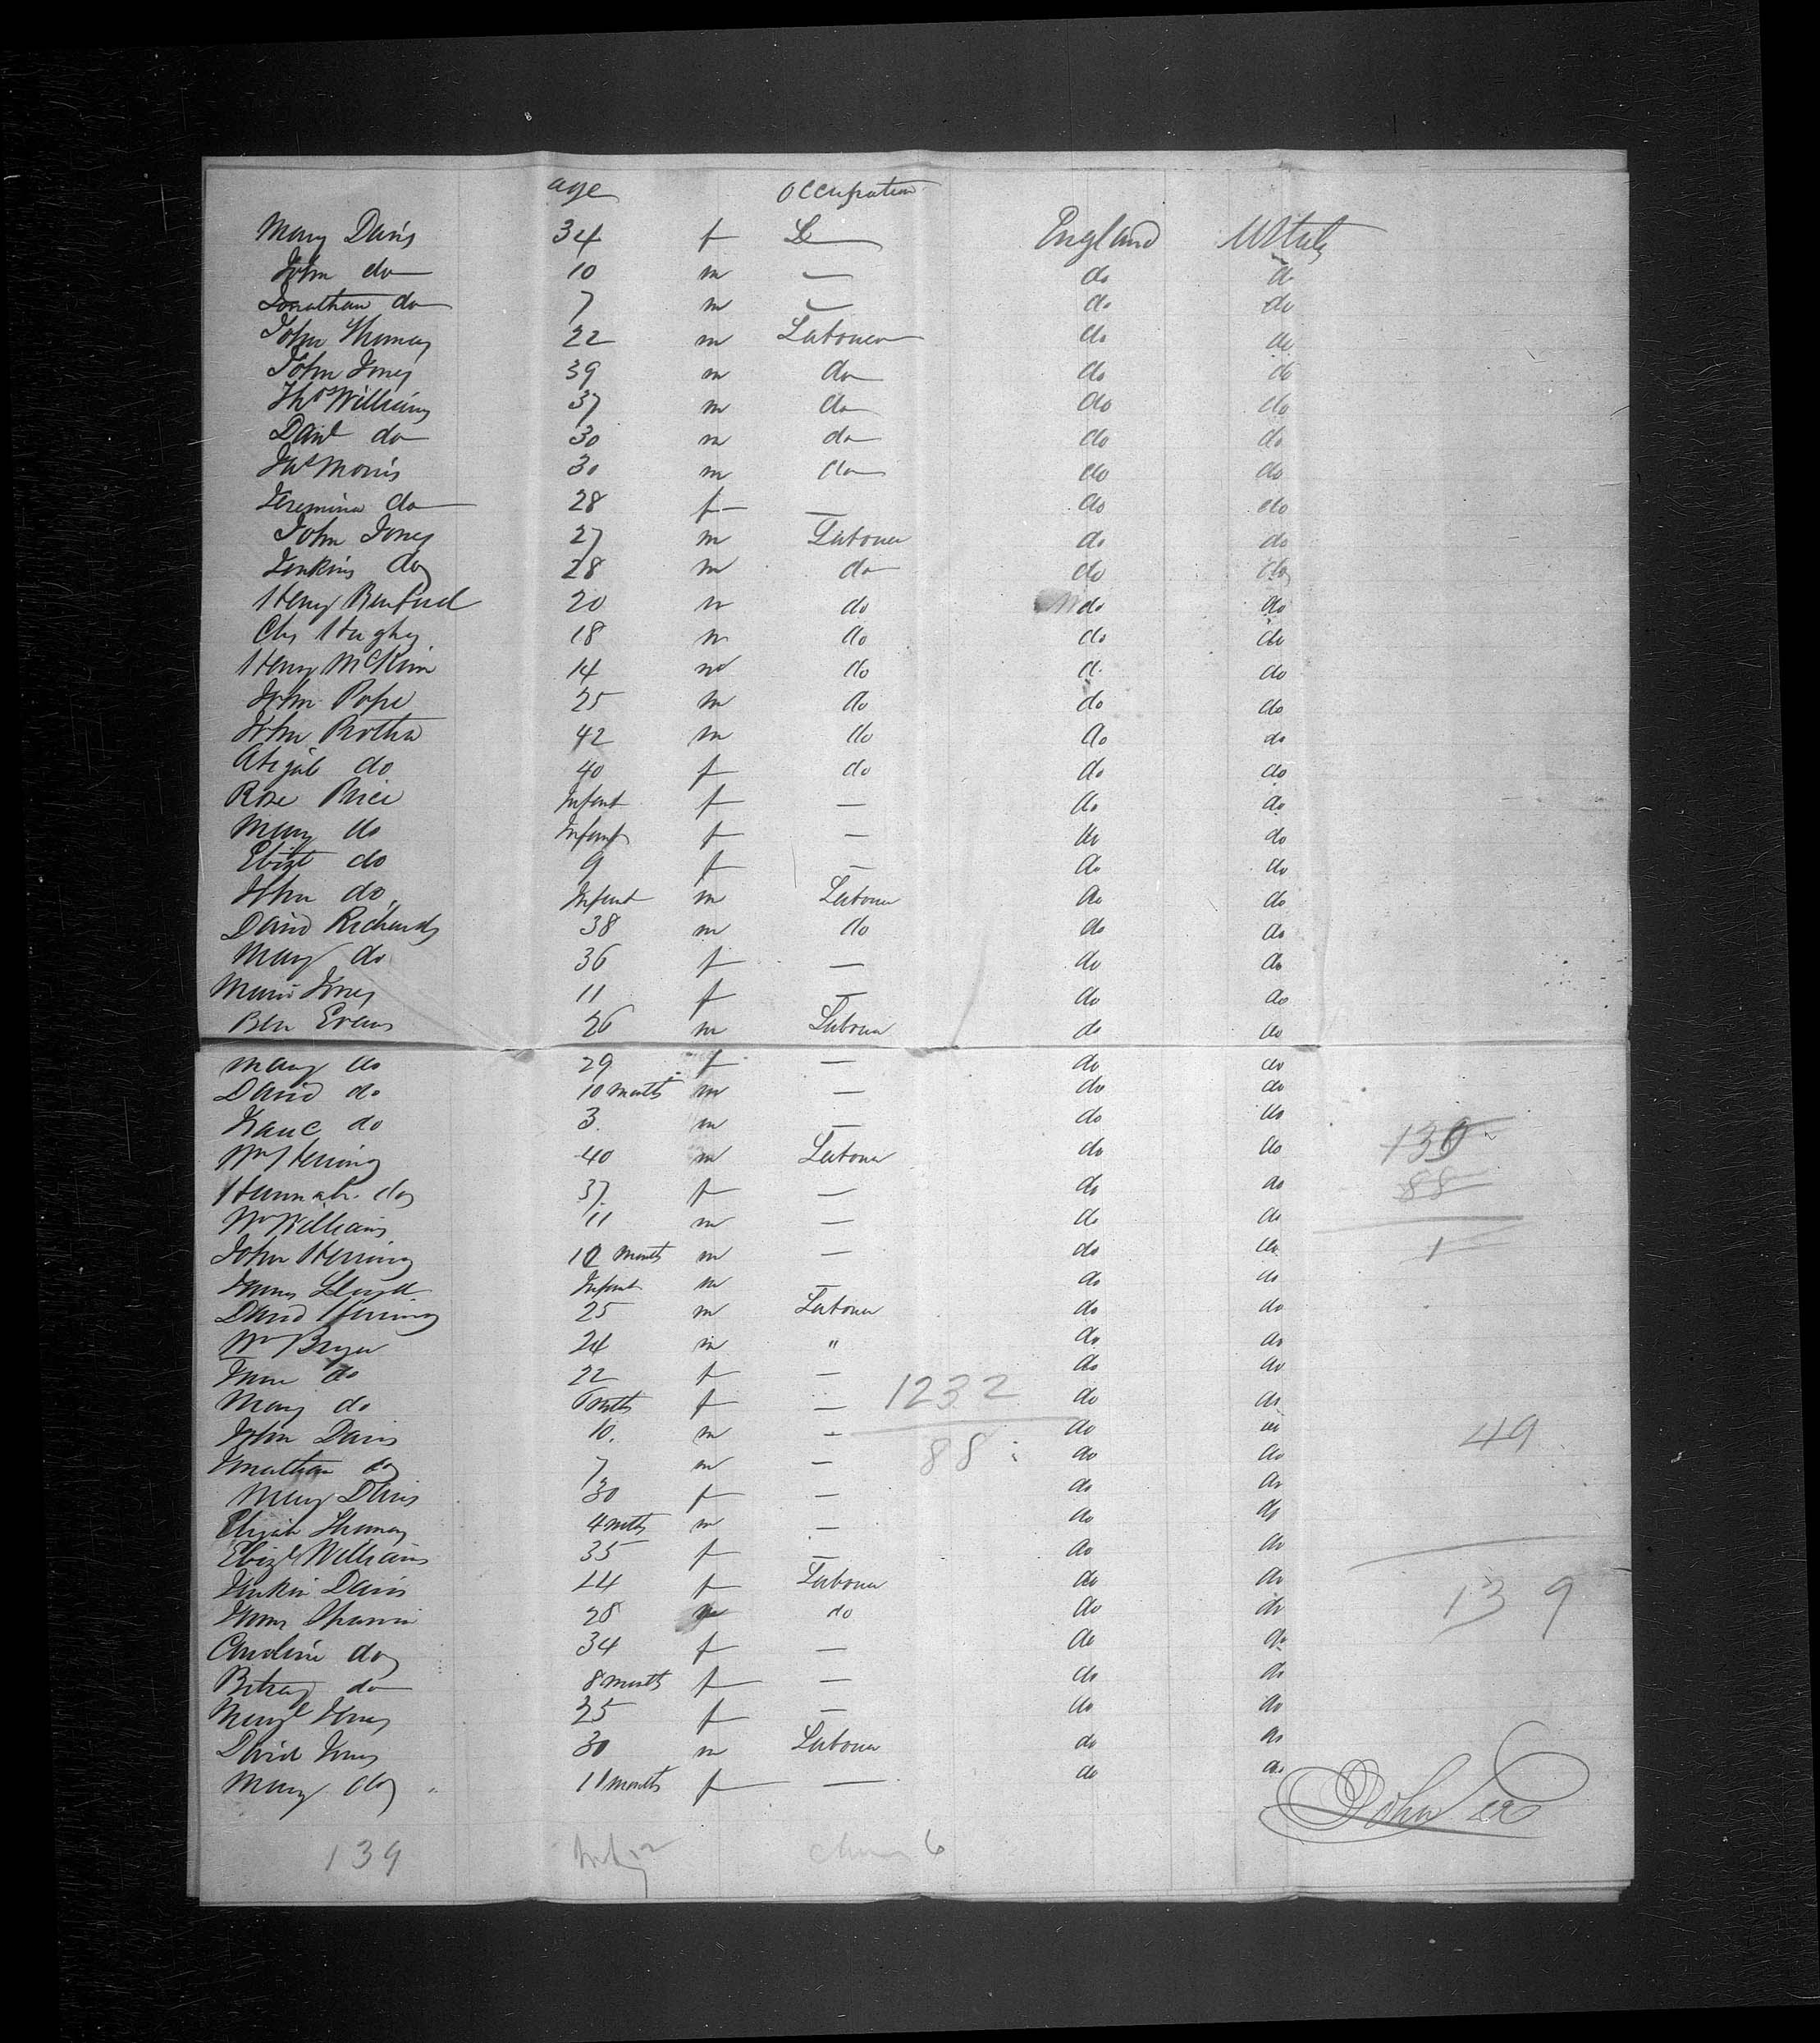 age Occupation
Mary Davis 34 f L England UStates
John do 10 m — do do
Jonathan do 7 m — do do
John Thomas 22 m Labourer do do
John Jones 39 m do do do
Thos Williams 37 m do do do
Danl do 30 m do do do
Jas Morris 30 m do do do
Jeremina do 28 f — do do
John Jones 27 m Labourer do do
Jenkins do 28 m do do do
Henry 20 m do do do
Chs Hughes 18 m do do do
Henry McKim 14 m do do do
John Pope 25 m do do do
John 42 m do do do
Abigail do 40 f do do do
Rose Price Infant f — do do
Mary do Infant f — do do
Elizt do 9 f — do do
John do Infant m Labourer do do
David Richards 38 m do do do
Mary do 36 f — do do
Maria Jones 11 f — do do
Ben Evans 26 m Labourer do do
Mary do 29 f — do do
David do 10 months m — do do
Isaac do 3 m — do do 130
Wm Herring 40 m Labourer do do 88
Hannah do 37 f — do do
Wm Williams 11 m — do do
John Herring 10 months m — do do 1
James Lloyd Infant m — do do
David Herring 25 m Labourer do do
Wm 24 m " do do
Jane do 22 f — do do
Mary do 6 mths f — 1232 do do
John Davis 10 m — do do 49
Jonathan do 7 m — 88 do do
Mary Davis 30 f — do do
Elijah Thomas 4 mths m — do do
Elizt Williams 35 f — do do
Jenkin Davis 24 f Labourer do do 139
James 28 m do do do
Caroline do 34 f — do do
Betsey do 8 months f — do do
Jones 25 f — do do
David Jones 30 m Labourer do do
Mary do 11 months f — do do
John
139 6